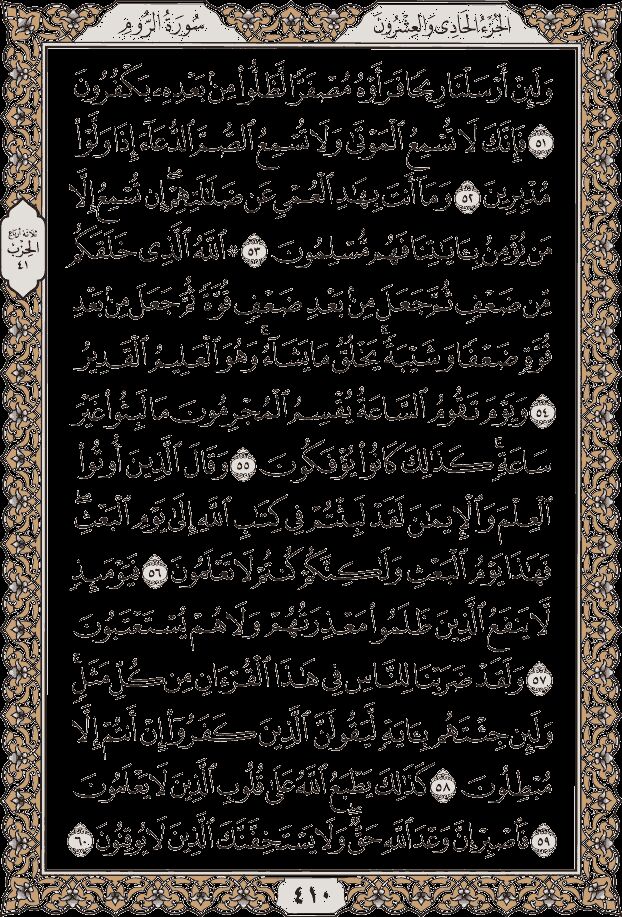 الجُزْءُ الحَادِي وَالعِشْرُونَ
سُورَةُ الرُّومِ
وَلَئِنْ أَرْسَلْنَا رِيحًا فَرَأَوْهُ مُصْفَرًّا لَّظَلُّوا۟ مِنۢ بَعْدِهِۦ يَكْفُرُونَ
٥١ فَإِنَّكَ لَا تُسْمِعُ ٱلْمَوْتَىٰ وَلَا تُسْمِعُ ٱلصُّمَّ ٱلدُّعَآءَ إِذَا وَلَّوْا۟
مُدْبِرِينَ ٥٢ وَمَآ أَنتَ بِهَٰدِ ٱلْعُمْىِ عَن ضَلَٰلَتِهِمْ ۖ إِن تُسْمِعُ إِلَّا
مَن يُؤْمِنُ بِـَٔايَٰتِنَا فَهُم مُّسْلِمُونَ ٥٣ ۞ ٱللَّهُ ٱلَّذِى خَلَقَكُم
مِّن ضَعْفٍ ثُمَّ جَعَلَ مِنۢ بَعْدِ ضَعْفٍ قُوَّةً ثُمَّ جَعَلَ مِنۢ بَعْدِ
قُوَّةٍ ضَعْفًا وَشَيْبَةً ۚ يَخْلُقُ مَا يَشَآءُ ۖ وَهُوَ ٱلْعَلِيمُ ٱلْقَدِيرُ
٥٤ وَيَوْمَ تَقُومُ ٱلسَّاعَةُ يُقْسِمُ ٱلْمُجْرِمُونَ مَا لَبِثُوا۟ غَيْرَ
سَاعَةٍ ۚ كَذَٰلِكَ كَانُوا۟ يُؤْفَكُونَ ٥٥ وَقَالَ ٱلَّذِينَ أُوتُوا۟
ٱلْعِلْمَ وَٱلْإِيمَٰنَ لَقَدْ لَبِثْتُمْ فِى كِتَٰبِ ٱللَّهِ إِلَىٰ يَوْمِ ٱلْبَعْثِ ۖ
فَهَٰذَا يَوْمُ ٱلْبَعْثِ وَلَٰكِنَّكُمْ كُنتُمْ لَا تَعْلَمُونَ ٥٦ فَيَوْمَئِذٍ
لَّا يَنفَعُ ٱلَّذِينَ ظَلَمُوا۟ مَعْذِرَتُهُمْ وَلَا هُمْ يُسْتَعْتَبُونَ
٥٧ وَلَقَدْ ضَرَبْنَا لِلنَّاسِ فِى هَٰذَا ٱلْقُرْءَانِ مِن كُلِّ مَثَلٍ ۚ
وَلَئِن جِئْتَهُم بِـَٔايَةٍ لَّيَقُولَنَّ ٱلَّذِينَ كَفَرُوٓا۟ إِنْ أَنتُمْ إِلَّا
مُبْطِلُونَ ٥٨ كَذَٰلِكَ يَطْبَعُ ٱللَّهُ عَلَىٰ قُلُوبِ ٱلَّذِينَ لَا يَعْلَمُونَ
٥٩ فَٱصْبِرْ إِنَّ وَعْدَ ٱللَّهِ حَقٌّ ۖ وَلَا يَسْتَخِفَّنَّكَ ٱلَّذِينَ لَا يُوقِنُونَ ٦٠
ثلاثة أرباع
الحِزْب
٤١
٤١٠